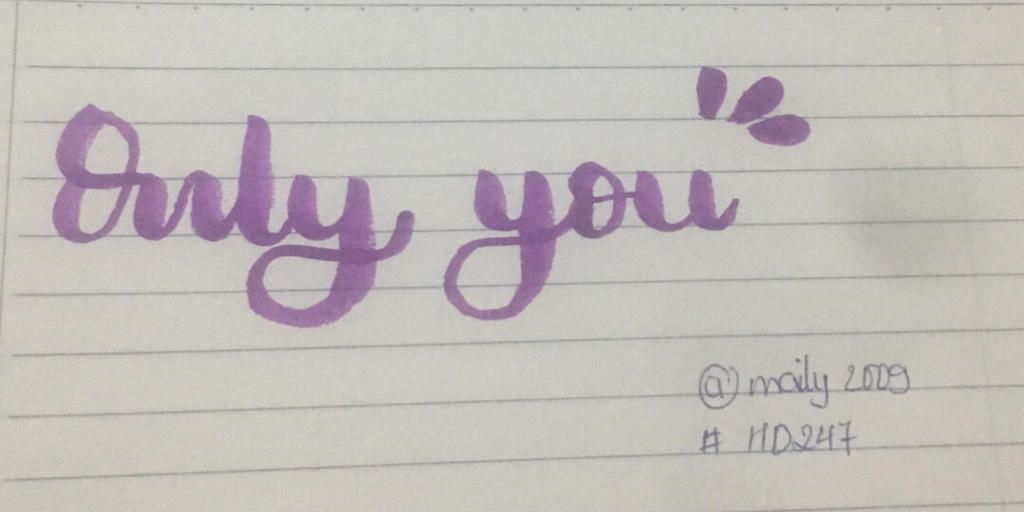 Only you
@maily 2009
# HD247